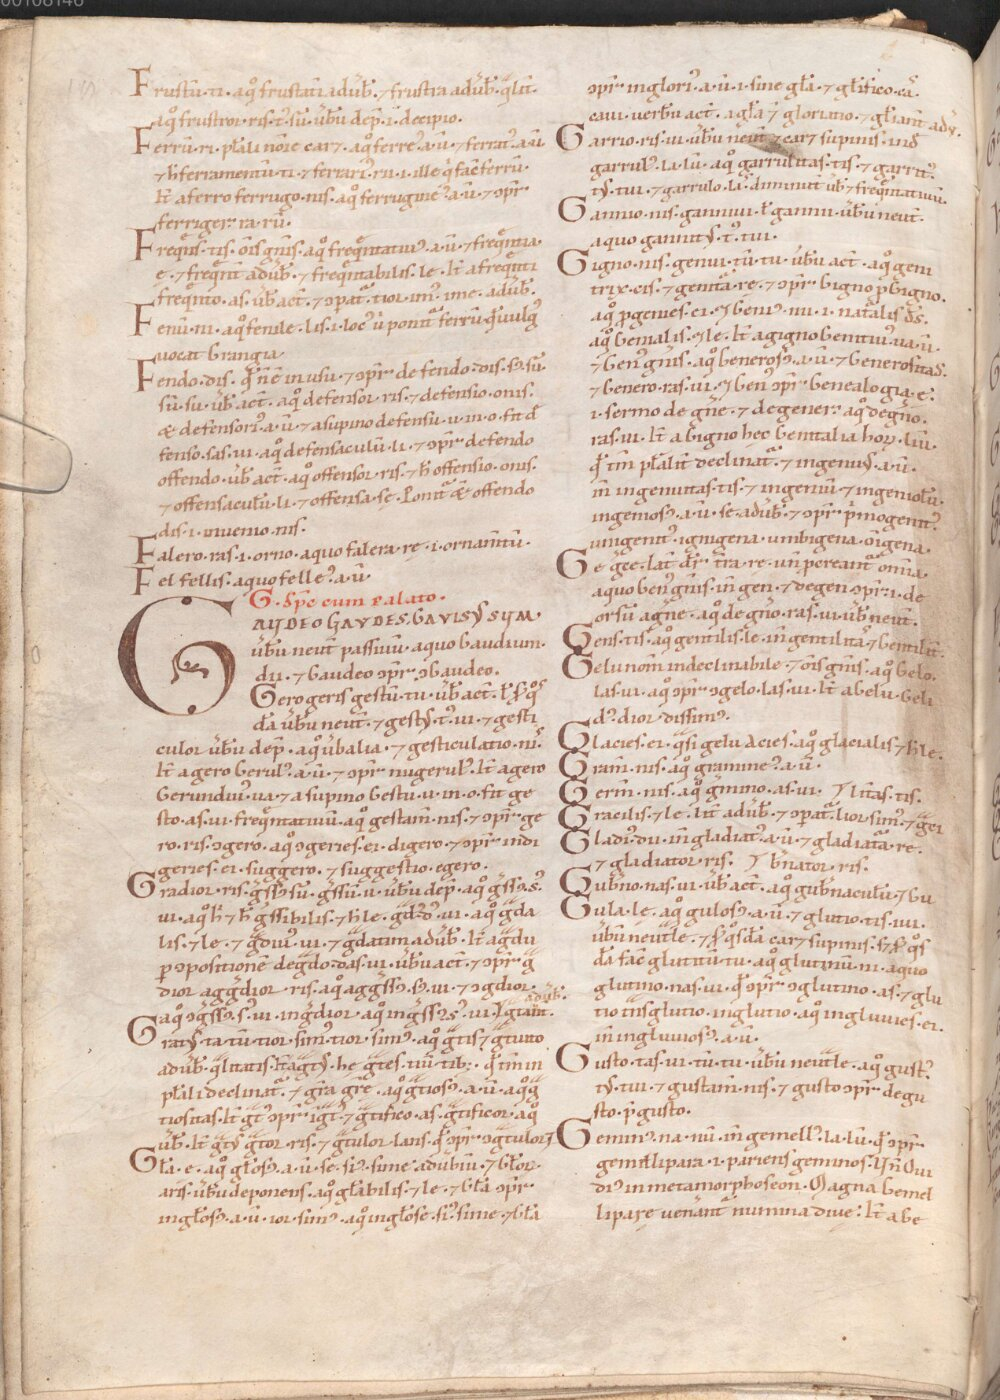 00108146
Frustū·ti· aq̊ frustatī adūb̄·⁊ frustra adūb̄·q̄lit̄·
aq̊ frustror·ris·t᷒ sū· ūbū dep̄·ī·decipio·
Ferrū·ri· pl̄ali nōīe car⁊· aq̊ ferre᷒·a·ū·⁊ ferrat᷒·a·ū
⁊ h̄ ferramentū·ti·⁊ ferrari᷒·rii·i·ille q̄ facit ferrū·
It̄ a ferro ferrugo·nis·aq̊ ferrugine᷒·a·ū·⁊ ɔpr̄
ferriger·ra·rū·
Freq̄ns·tis·ōīs gn̄is·aq̊ freq̄ntatiu᷒·a·ū·⁊ freq̄ntia·
e·⁊ freq̄nt̄ adūb̄·⁊ freq̄ntabilis·le·It̄ a freq̄nti
freq̄nto·as·ūb̄ act̄·⁊ ɔpat᷒·tior·im᷒·ime·adūb̄·
Fenū·ni·aq̊ fenile·lis·i·loc᷒ ū ponit᷒ ferrū q̄ uulg᷒
uocat brangia
Fendo·dis· q̄ n̄ ē in usu·⁊ ɔpr̄ defendo·dis·s᷒·sū·
sū·su·ūb̄ act̄·aq̊ defensor·ris·⁊ defensio·onis·
& defensori᷒·a·ū·⁊ a supino defensu·u·in·o·fit d̄
fenso·sas·ui·aq̊ defensaculū·li·⁊ ɔpr̄ defendo
offendo·ūb̄ act̄·aq̊ offensor·ris·⁊ h̄ offensio·onis·
⁊ offensaculū·li·⁊ offensa·sę· Ponit᷒ & offendo
dis·i·inuenio·nis·
Falero·ras·i·orno·a quo falera·rę·i·ornam̄tū·
Fel fellis·a quo felle᷒·a·ū
G·Sp̄e cum palato·
GAUDEO GAUDES·GAUISUS SUM·
ūbū neut̄ passiuū·a quo Gaudium·
dii·⁊ Gaudeo ɔpr̄ ɔGaudeo·
Gero geris gestū·tu·ūb̄ act̄·
dā ūbū neut̄·⁊ gestus·t᷒·ui·⁊ gesti
culor ūbū dep̄·aq̊ ūbalia·⁊ gesticulatio·nis·
It̄ a gero Gerul᷒·a·ū·⁊ ɔpr̄ nugerul᷒·It̄ a gero
Gerundiu᷒·ua·⁊ a supino Gestu·u·in·o·fit ge
sto·as·ui·freq̄ntatiuū·aq̊ gestam̄·nis·⁊ ɔpr̄ ge
ro·ris·ɔgero·aq̊ ɔgeries·ei·digero·⁊ ɔpr̄ indi
geries·ei·suggero·⁊ suggestio·egero·
Gradior·ris·ḡss᷒·sū·ḡssū·u·ūbū dep̄·aq̊ ḡss᷒·s᷒·
ui·aq̊ h̄ ⁊ h̄ ḡssibilis·⁊ h̄ le·ḡd᷒·d᷒·ui·aq̊ ḡda
lis·⁊ le·⁊ ḡdiu᷒·ui·⁊ ḡdatim adūb̄·It̄ aḡdu
p ɔpositionē deḡdo·das·ui·ūbū act̄·⁊ ɔpr̄ ḡ
dior aggḡdior·ris·aq̊ aggḡss᷒·s᷒·ui·⁊ ɔgdior·
aq̊ ɔḡss᷒·s᷒·ui·inḡdior·aq̊ inḡss᷒·s᷒·ui·
Gratus·ta·tū·tior·sim᷒·tior·sim᷒·aq̊ ḡtis·⁊ ḡtuito
adūb̄·q̄litatis·It̄ aḡtus·hę ḡtes·tiū·tib᷒· q̄ tm̄ in
pl̄ali declinat᷒·⁊ ḡra ḡrę·aq̊ ḡtios᷒·a·ū·aq̊
tiositas·It̄ ḡt᷒ ɔpr̄ iḡt᷒·⁊ ḡtifico·as·ḡtificor·aq̊
ūb̄·It̄ ḡtus ḡtor·ris·⁊ ḡtulor·laris·q̄ ɔpr̄ ɔḡtulor·
Gl̄a·e·aq̊ gl̄os᷒·a·ū·se·si᷒·sime·adūbiū·⁊ Gl̄or·
aris·ūbū deponens·aq̊ gl̄abilis·⁊ le·⁊ Gl̄a ɔpr̄
ingl̄os᷒·a·ū·ior·sim᷒·aq̊ ingl̄ose·si᷒·sime·⁊ Gl̄a
ɔpr̄ inglori᷒·a·ū·i·sine gl̄a·⁊ gl̄ifico·cā
caui·uerbū act̄·a gl̄a ⁊ gloriatio·⁊ gl̄ianť adū·
Garrio·ris·ui·ūbū neut̄ ⁊ car⁊ supinis·inď
garrul᷒·la·lū·aq̊ garrulitas·tis·⁊ garrit᷒·
tus·tui·⁊ garrulo·la᷒·diminuit̄ ūb̄ ⁊ freq̄ntatiuū·
Gannio·nis·ganniui·ł gannii·ūbū neut̄·
a quo gannitus·t᷒·tui·
Gigno·nis·genui·tū·tu·ūbū act̄·aq̊ geni
trix·cis·⁊ genita·rę·⁊ ɔpr̄ Gigno pGigno·
aq̊ pgenies·ei·⁊ Geni᷒·nii·i·natalis ds̄·
aq̊ Genialis·⁊ le·It̄ a gigno Genitiu᷒·ua·ū·
⁊ Gen᷒ gn̄is·aq̊ Generos᷒·a·ū·⁊ Generositas·
⁊ Genero·ras·ui·⁊ Gen᷒ ɔpr̄ Genealogia·e᷒·
i·sermo de gn̄e·⁊ degener᷒ aq̊ degn̄o·
ras·ui·It̄ a Gigno hęc Genitalia hor⁊·liū·
q̄ tm̄ pl̄alit̄ declinat᷒·⁊ ingenuus·a·ū·
īn ingenuitas·tis·⁊ ingeniū·⁊ ingeniolū·
ingenios᷒·a·ū·se·adūb̄·⁊ ɔpr̄ p̄mogenit᷒·
unigenit᷒·ignigena·umbigena·oīgena·
Ge gęe·lat̄ dr̄ tr̄a·re·
a quo Gen᷒ gn̄is·īn gen·⁊ degen᷒ ɔpr̄·i·de
orsū a gn̄e·aq̊ degn̄o·ras·ui·ūb̄ neut̄·
Gens·tis·aq̊ gentilis·le·īn gentilitas ⁊ Gentilit̄·
Gelu nom̄ indeclinabile·⁊ ōīs gn̄is·aq̊ Gelo·
las·ui·aq̊ ɔpr̄ ɔgelo·las·ui·It̄ a Gelu·Geli
d᷒·dior·dissim᷒·
Glacies·ei·q̄si gelu Acies·aq̊ glacialis·⁊ h̄ le·
Gram̄·nis·aq̊ gramine᷒·a·ū·
Germ̄·nis·aq̊ gm̄ino·as·ui·
Gracilis·⁊ le·lit̄ adūb̄·⁊ ɔpat᷒·lior·sim᷒·
Gladi᷒·dii·īn gladiat᷒·a·ū·⁊ gladiata·re·
⁊ gladiator·ris· ⁊ Gn̄ator·ris·
Gub̄no·nas·ui·ūb̄ act̄·aq̊ gub̄naculū·⁊ Gu
Gula·le·aq̊ gulos᷒·a·ū·⁊ glutio·tis·iui·
ūbū neut̄le·
dā fac̄ glutitū·tu·aq̊ glutinū·ni·a quo
glutino·nas·ui·q̄ ɔpr̄ ɔglutino·as·⁊ glu
tio tn̄sglutio·inglutio·aq̊ ingluuies·ei·
īn ingluuios᷒·a·ū·
Gusto·tas·ui·tū·tu·ūbū neut̄le·aq̊ gust᷒·
tus·tui·⁊ gustam̄·nis·⁊ gusto ɔpr̄ degu
sto·p̄gusto·
Gemin᷒·na·nū·īn gemell᷒·la·lū·q̄ ɔpr̄
gemellipara·i·pariens geminos·Un̄ Oui
di᷒ in metamorphoseon·Magna Gemel
lipare uenant᷒ numina diue·It̄ a Ge